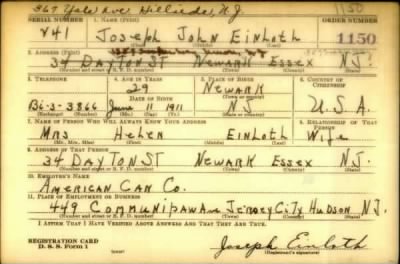 367 Yale Ave Hillside, N.J. 1150
SERIAL NUMBER 1. NAME (Print) ORDER NUMBER
V41 Joseph John Einloth 1150
(First) (Middle) (Last)
2. ADDRESS (Print)
34 DAYTON ST NEWARK ESSEX N.J.
(Number and street or R. F. D. number) (Town) (County) (State)
3. TELEPHONE 4. AGE IN YEARS 5. PLACE OF BIRTH 6. COUNTRY OF CITIZENSHIP
29 NEWARK
DATE OF BIRTH (Town or county)
BI-3-3866 June 11 1911 N.J. U.S.A.
(Exchange) (Number) (Mo.) (Day) (Yr.) (State or country)
7. NAME OF PERSON WHO WILL ALWAYS KNOW YOUR ADDRESS 8. RELATIONSHIP OF THAT PERSON
MRS Helen EINLOTH Wife
(Mr., Mrs., Miss) (First) (Middle) (Last)
9. ADDRESS OF THAT PERSON
34 DAYTON ST NEWARK ESSEX N.J.
(Number and street or R. F. D. number) (Town) (County) (State)
10. EMPLOYER'S NAME
AMERICAN CAN CO.
11. PLACE OF EMPLOYMENT OR BUSINESS
449 COMMUNIPAW AVE JERSEY CITY HUDSON N.J.
(Number and street or R. F. D. number) (Town) (County) (State)
I AFFIRM THAT I HAVE VERIFIED ABOVE ANSWERS AND THAT THEY ARE TRUE.
REGISTRATION CARD
D. S. S. Form 1
Joseph Einloth
(Registrant's signature)